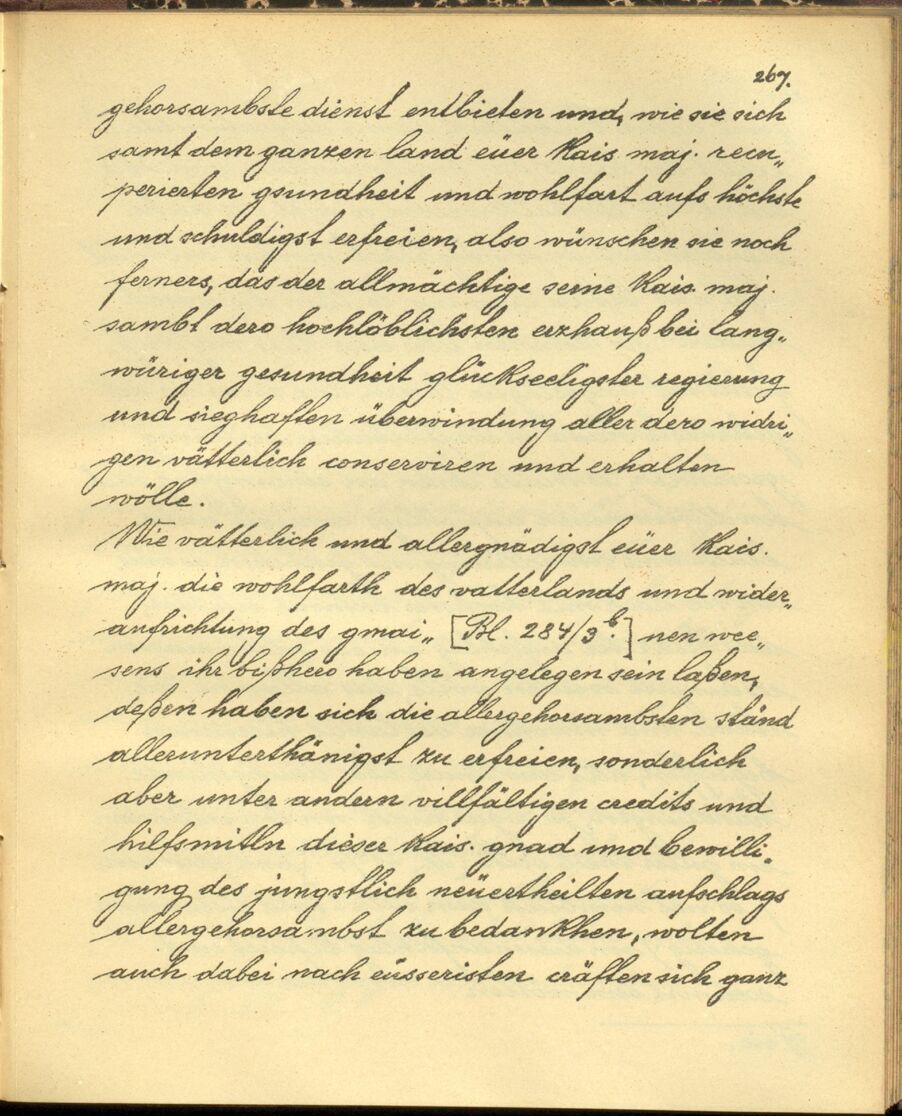 267.
gehorsambste dienst entbieten und, wie sie sich
samt dem ganzen land eüer Kais. maj. recu„
perierten gsundheit und wohlfart aufs höchste
und schuldigst erfreien, also wünschen sie noch
ferners, das der allmächtige seine Kais. maj.
sambt dero hochlöblichsten erzhauß bei lang„
würiger gesundheit glückseeligster regierung
und sieghaften überwindung aller dero widri„
gen vätterlich conserviren und erhalten
wölle.
Wie vätterlich und allergnädigst eüer Kais.
maj. die wohlfarth des vatterlands und wider„
aufrichtung des gmai„ [Bl. 284/3b.] nen wee„
sens ihr bißhero haben angelegen sein laßen,
deßen haben sich die allergehorsambsten ständ
allerunterthänigst zu erfreien, sonderlich
aber unter andern villfältigen credits und
hilfsmitln dieser Kais. gnad und bewilli„
gung des jungstlich neüertheilten aufschlags
allergehorsambst zu bedankhen, wolten
auch dabei nach eüsseristen cräften sich ganz